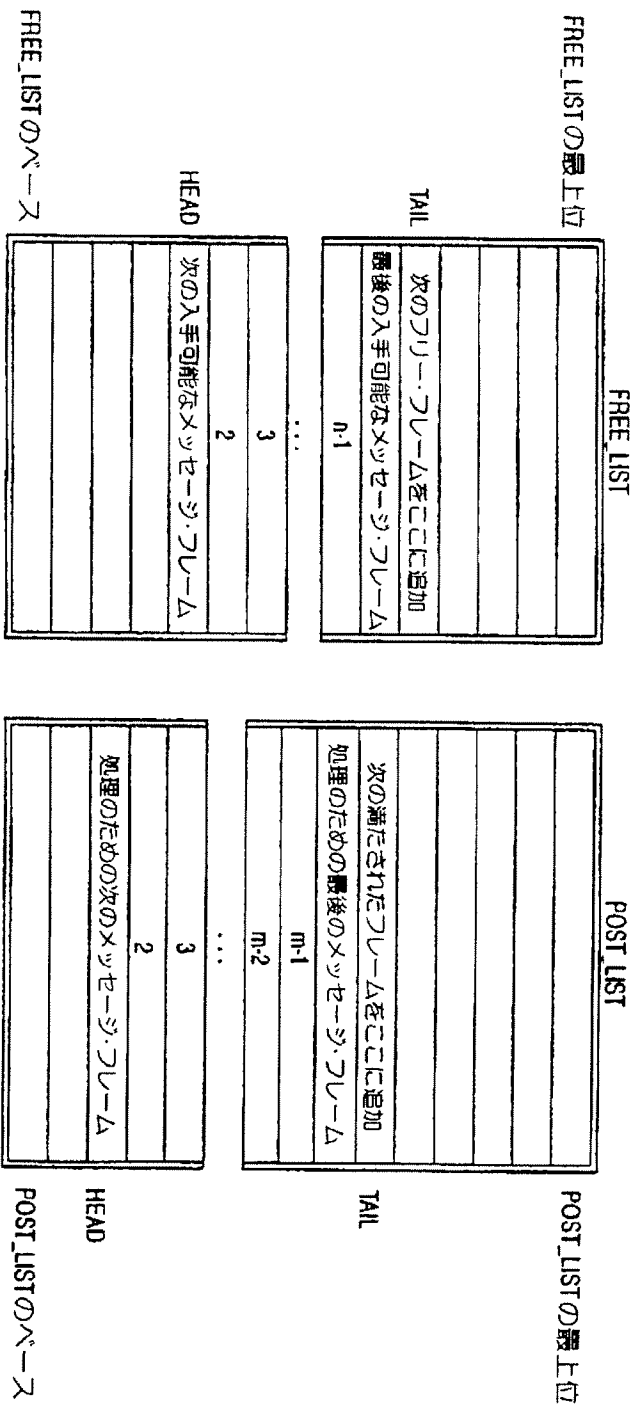 FREE_LIST
FREE_LISTの最上位
TAIL
次のフリー・フレームをここに追加
最後の入手可能なメッセージ・フレーム
n-1
...
3
2
HEAD
次の入手可能なメッセージ・フレーム
FREE_LISTのベース
POST_LIST
POST_LISTの最上位
次の満たされたフレームをここに追加
TAIL
処理のための最後のメッセージ・フレーム
m-1
m-2
...
3
2
処理のための次のメッセージ・フレーム
HEAD
POST_LISTのベース